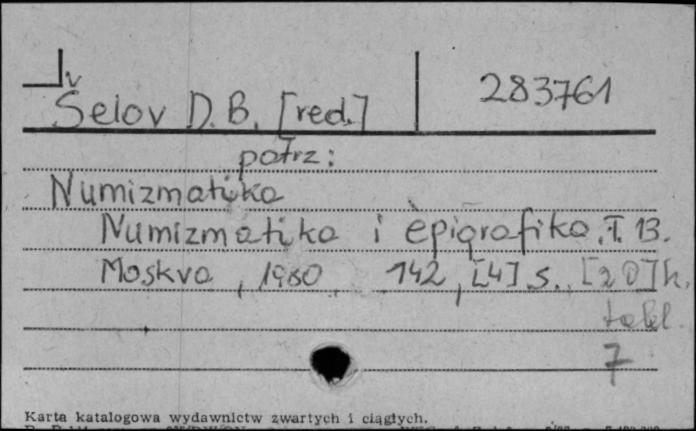 Šelov D. B. [red.] 283761
patrz:
Numizmatika
Numizmatika i èpigrafika. T. 13.
Moskva, 1980. 142, [4] s., [20] k.
tabl.
7
Karta katalogowa wydawnictw zwartych i ciągłych.